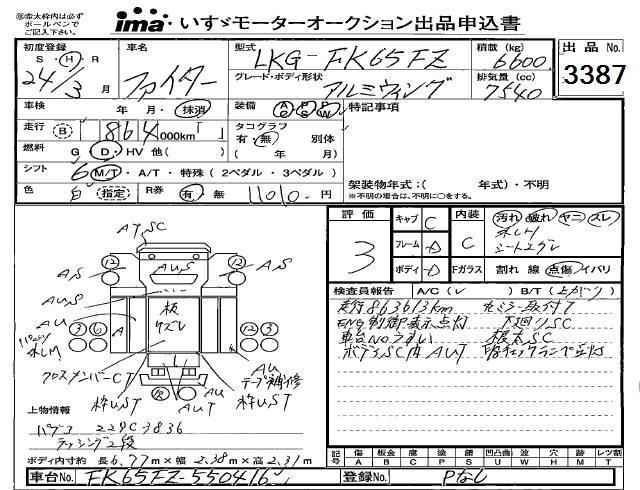 ㊟赤太枠内は必ず
ボールペンで
ご記入下さい。
ima いすゞモーターオークション出品申込書
初度登録 S・H・R 24/3月
車名 ファイター
型式 LKG-FK65FZ
グレード・ボディ形状 アルミウィング
積載(kg) 6600
排気量(cc) 7540
出品No. 3387
車検 年・月・抹消
装備 AC PS PW
特記事項
走行 B 864,000km「 」
タコグラフ 有・無 別体
( 年 月)
燃料 G・D・HV 他( )
シフト 6 M/T・A/T・特殊(2ペダル・3ペダル)
色 白 指定
R券 有・無 11010円
架装物年式:( 年式)・不明
※不明の場合は、不明に○をする。
評価 3
キャブ C
フレーム D
ボディ D
内装 C
汚れ 破れ ヤニ スレ
シートエグレ
Fガラス 割れ 線 点傷 イバリ
検査員報告 A/C(レ) B/T(上がり)
走行863613km 左ミラー取付ア
ENG制御表示点灯 下廻りSC
車台NOうすい 根太SC
ボディSC内AUT
AT SC
AUS
12 12
A,S A,S
AU
板
ウスレ
A
3 6 12 3
木LM
クロスメンバーCT
枠UST
AU
AUT
枠UST
AU
テープ補修
上物情報
パブコ 229C3836
ラッシング2段
ボディ内寸約 長 6.77m×幅 2.38m×高 2.31m
記号 傷 A 板金 B 腐 C 塗 P 錆 S 凹凸曲 U 波 W 穴 H 跡 M ハズレ T レツ割
車台No. FK65FZ-550416
登録No. Pなし